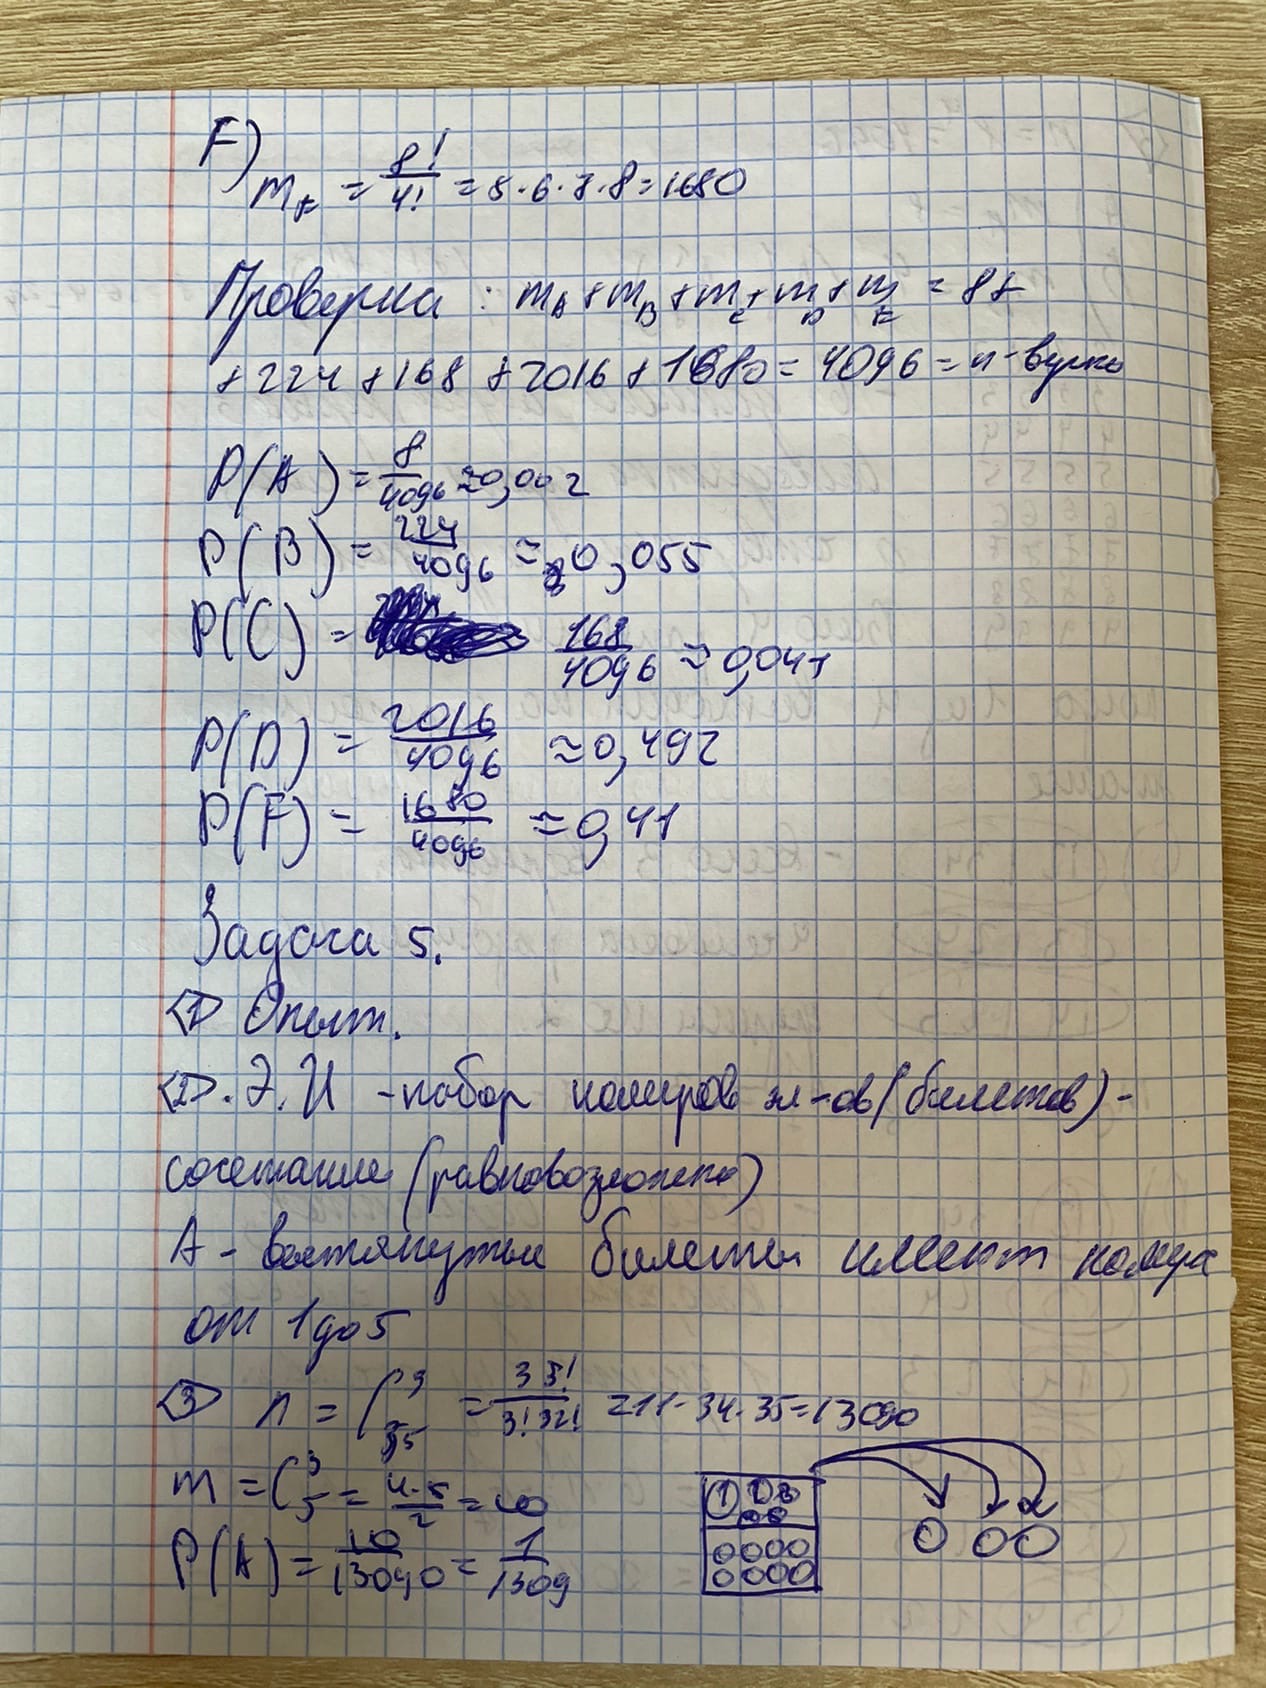 F)
m_F = 8!/4! = 5·6·7·8=1680
Проверка : m_A+m_B+m_C+m_D+m_F = 8+
+224+168+2016+1680=4096=n-верно
P(A)=8/4096≈0,002
P(B)=224/4096≈0,055
P(C)=168/4096≈0,041
P(D)=2016/4096≈0,492
P(F)=1680/4096≈0,41
Задача 5.
<1> Опыт.
<2>. Э.И -набор номеров эл-ов(билетов)-
сочетание (равновозможно)
A - вытянутые билеты имеют номера
от 1 до 5
<3> n = C_35^3 = 35!/3!32! =11·34·35=13090
m = C_5^3 = 4·5/2 = 10
P(A)=10/13090=1/1309
1 2 3